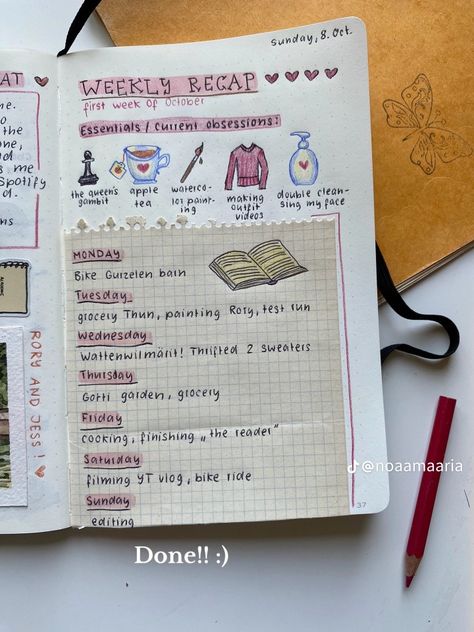 sunday, 8. Oct.
AT
WEEKLY RECAP
first week of October
Essentials / current obsessions:
the queen's gambit
apple tea
waterco-
lor paint-
ing
making
outfit
videos
double clean-
sing my face
me.
o
the
one,
d
s me
Spotify
d.
ns
RORY AND JESS!
MONDAY
Bike Gurzelen barn
Tuesday
grocery Thun, painting Rory, test run
Wednesday
Wattenwilmärit! Thrifted 2 sweaters
Thursday
Gotti garden, grocery
Friday
cooking, finishing „the reader"
Saturday
filming YT vlog, bike ride
Sunday
editing
37
@noaamaaria
Done!! :)